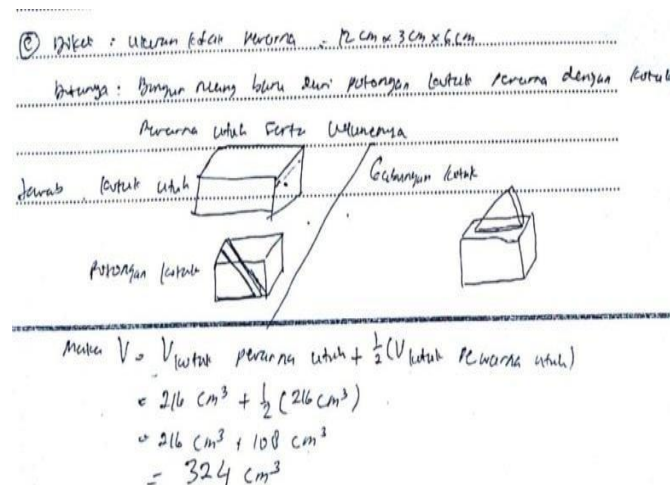 C Diket : Ukuran kotak pewarna = 12 cm x 3 cm x 6 cm
Ditanya : Bangun ruang baru dari potongan kotak pewarna dengan kotak
Pewarna utuh serta Volumenya
Jawab kotak utuh
Gabungan kotak
Potongan kotak
Maka V = V kotak pewarna utuh + 1/2 (V kotak Pewarna utuh)
= 216 cm³ + 1/2 (216 cm³)
= 216 cm³ + 108 cm³
= 324 cm³